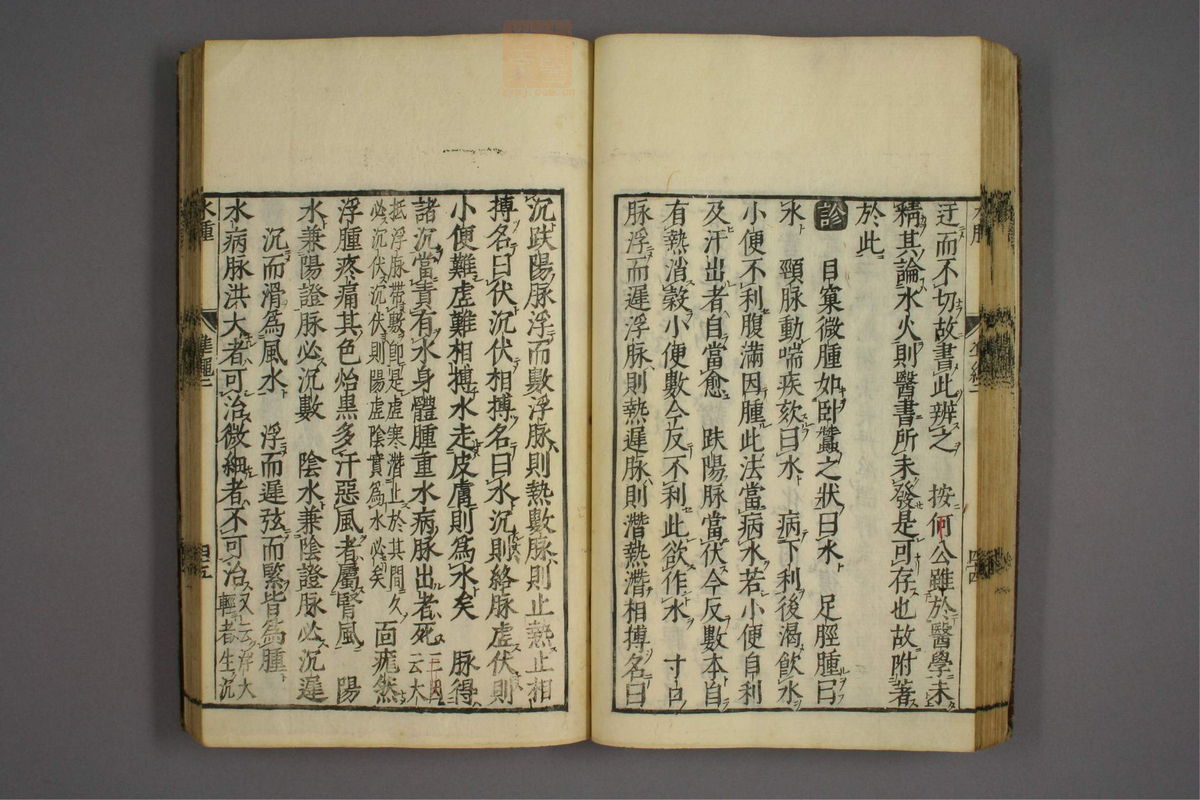 迂而不切故書此辨之　按何公雖於醫學未
精其論水火則醫書所未發是可存也故附著
於此
診　目窠微腫如臥蠶之狀曰水　足脛腫曰
水　頸脈動喘疾欬曰水　病下利後渴飲水
小便不利腹滿因腫此法當病水若小便自利
及汗出者自當愈　趺陽脈當伏今反數本自
有熱消穀小便數今反不利此欲作水　寸口
脈浮而遲浮脈則熱遲脈則潛熱潛相搏名曰
沉趺陽脈浮而數浮脈則熱數脈則止熱止相
搏名曰伏沉伏相搏名曰水沉則絡脈虛伏則
小便難虛難相搏水走皮膚則為水矣　脈得
諸沉當責有水身體腫重水病脈出者死一云大
抵浮脈帶數即是虛寒潛止於其間久
必沉伏沉伏則陽虛陰實為水必矣　面㿔然
浮腫疼痛其色炲黑多汗惡風者屬腎風　陽
水兼陽證脈必沉數　陰水兼陰證脈必沉遲
沉而滑為風水　浮而遲弦而緊皆為腫
水病脈洪大者可治微細者不可治又云浮大
輕者生沉
水腫
準繩二
四五